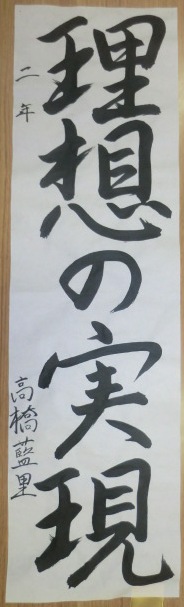 理想の実現
二年
高橋藍里